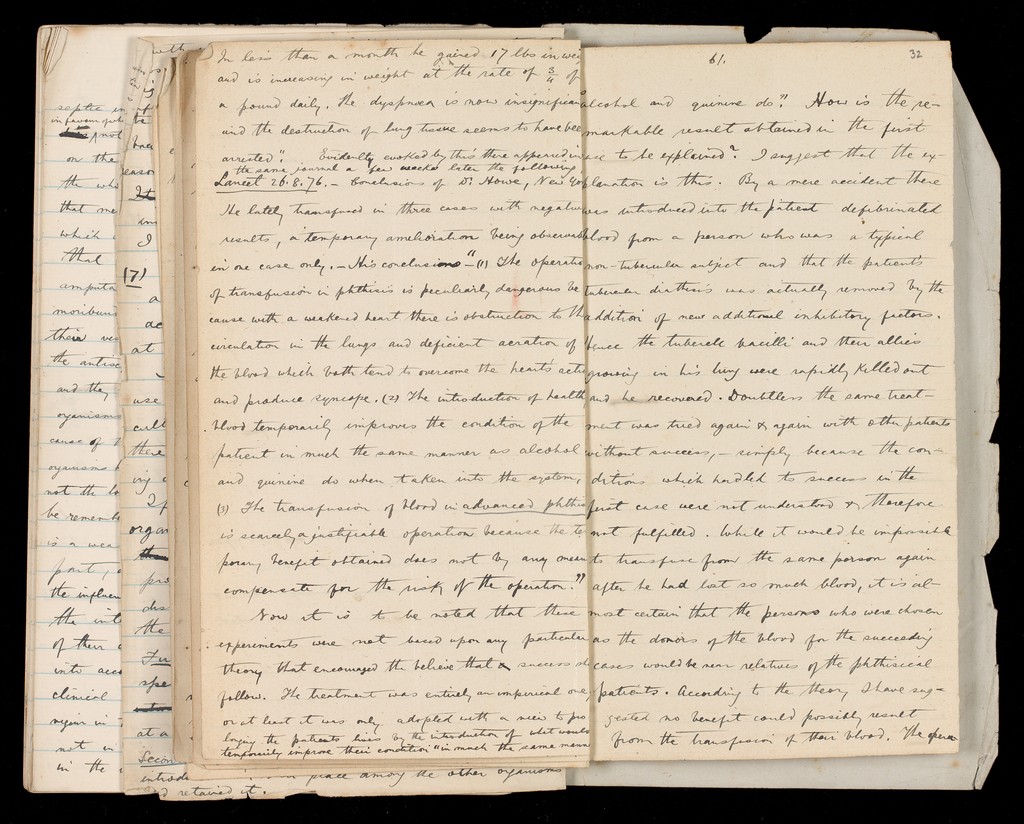 septic in
in favour of wh
not
on the
the who
that me
which
that
amputa
moribun
their ves
the antise
and they
organisms
cause of t
organisms
not the b
be rememb
is a wea
part,
the influen
the int
of their
into acco
clinical
regions in
not in
in the
with
be
eason
It
in
I
(7)
a
ac
at
use
cult
there
ing
If
organ
pro
dis
the
Fur
spe
at a
Secon
introdu place among the other organisms
retained it.
In less than a month he gained 17 lbs in wei
and is increasing in weight at the rate of 3/4 of
a pound daily. The dyspnœa is now insignifican
and the destruction of lung tissue seems to have bee
arrested". Evidently evoked by this there appeared in
the same journal a few weeks later the following
Lancet 26.8.76. – Conclusions of Dr Howe, New Yo
He lately transfused in three cases with negative
results, a temporary amelioration being observab
in one case only. – His conclusions – "(1) The operatio
of transfusion in phthisis is peculiarly dangerous be
cause with a weakened heart there is obstruction to th
circulation in the lungs and deficient aeration of
the blood which both tend to overcome the heart's acti
and produce syncope. (2) The introduction of health
blood temporarily improves the condition of the
patient in much the same manner as alcohol
and quinine do when taken into the system,
(3) The transfusion of blood in advanced phthis
is scarcely a justifiable operation because the te
porary benefit obtained does not by any mean
compensate for the risk of the operation."
Now it is to be noted that these
experiments were not based upon any particular
theory that encouraged the believe that success
follow. The treatment was entirely an imperical one,
or at least it was only adopted with a view to pro
longing the patients lives by the introduction of what would
temporarily improve their condition "in much the same mann
61. 32
alcohol and quinine do". How is the re-
markable result obtained in the first
case to be explained? I suggest that the ex-
planation is this. By a mere accident there
was introduced into the patient defibrinated
blood from a person who was a typical
non-tubercular subject and that the patient's
tubercular diathesis was actually removed by the
addition of new additional inhibitory factors.
Hence the tubercle bacilli and their allies
growing in his lung were rapidly killed out
and he recovered. Doubtless the same treat-
ment was tried again & again with other patients
without success, – simply because the con-
ditions which had led to success in the
first case were not understood &, therefore
not fulfilled. While it would be impossible
to transfuse from the same person again
after he had lost so much blood, it is al-
most certain that the persons who were chosen
as the donors of the blood for the succeeding
cases would be near relatives of the phthisical
patients. According to the theory I have sug-
gested no benefit could possibly result
from the transfusion of their blood. The opera